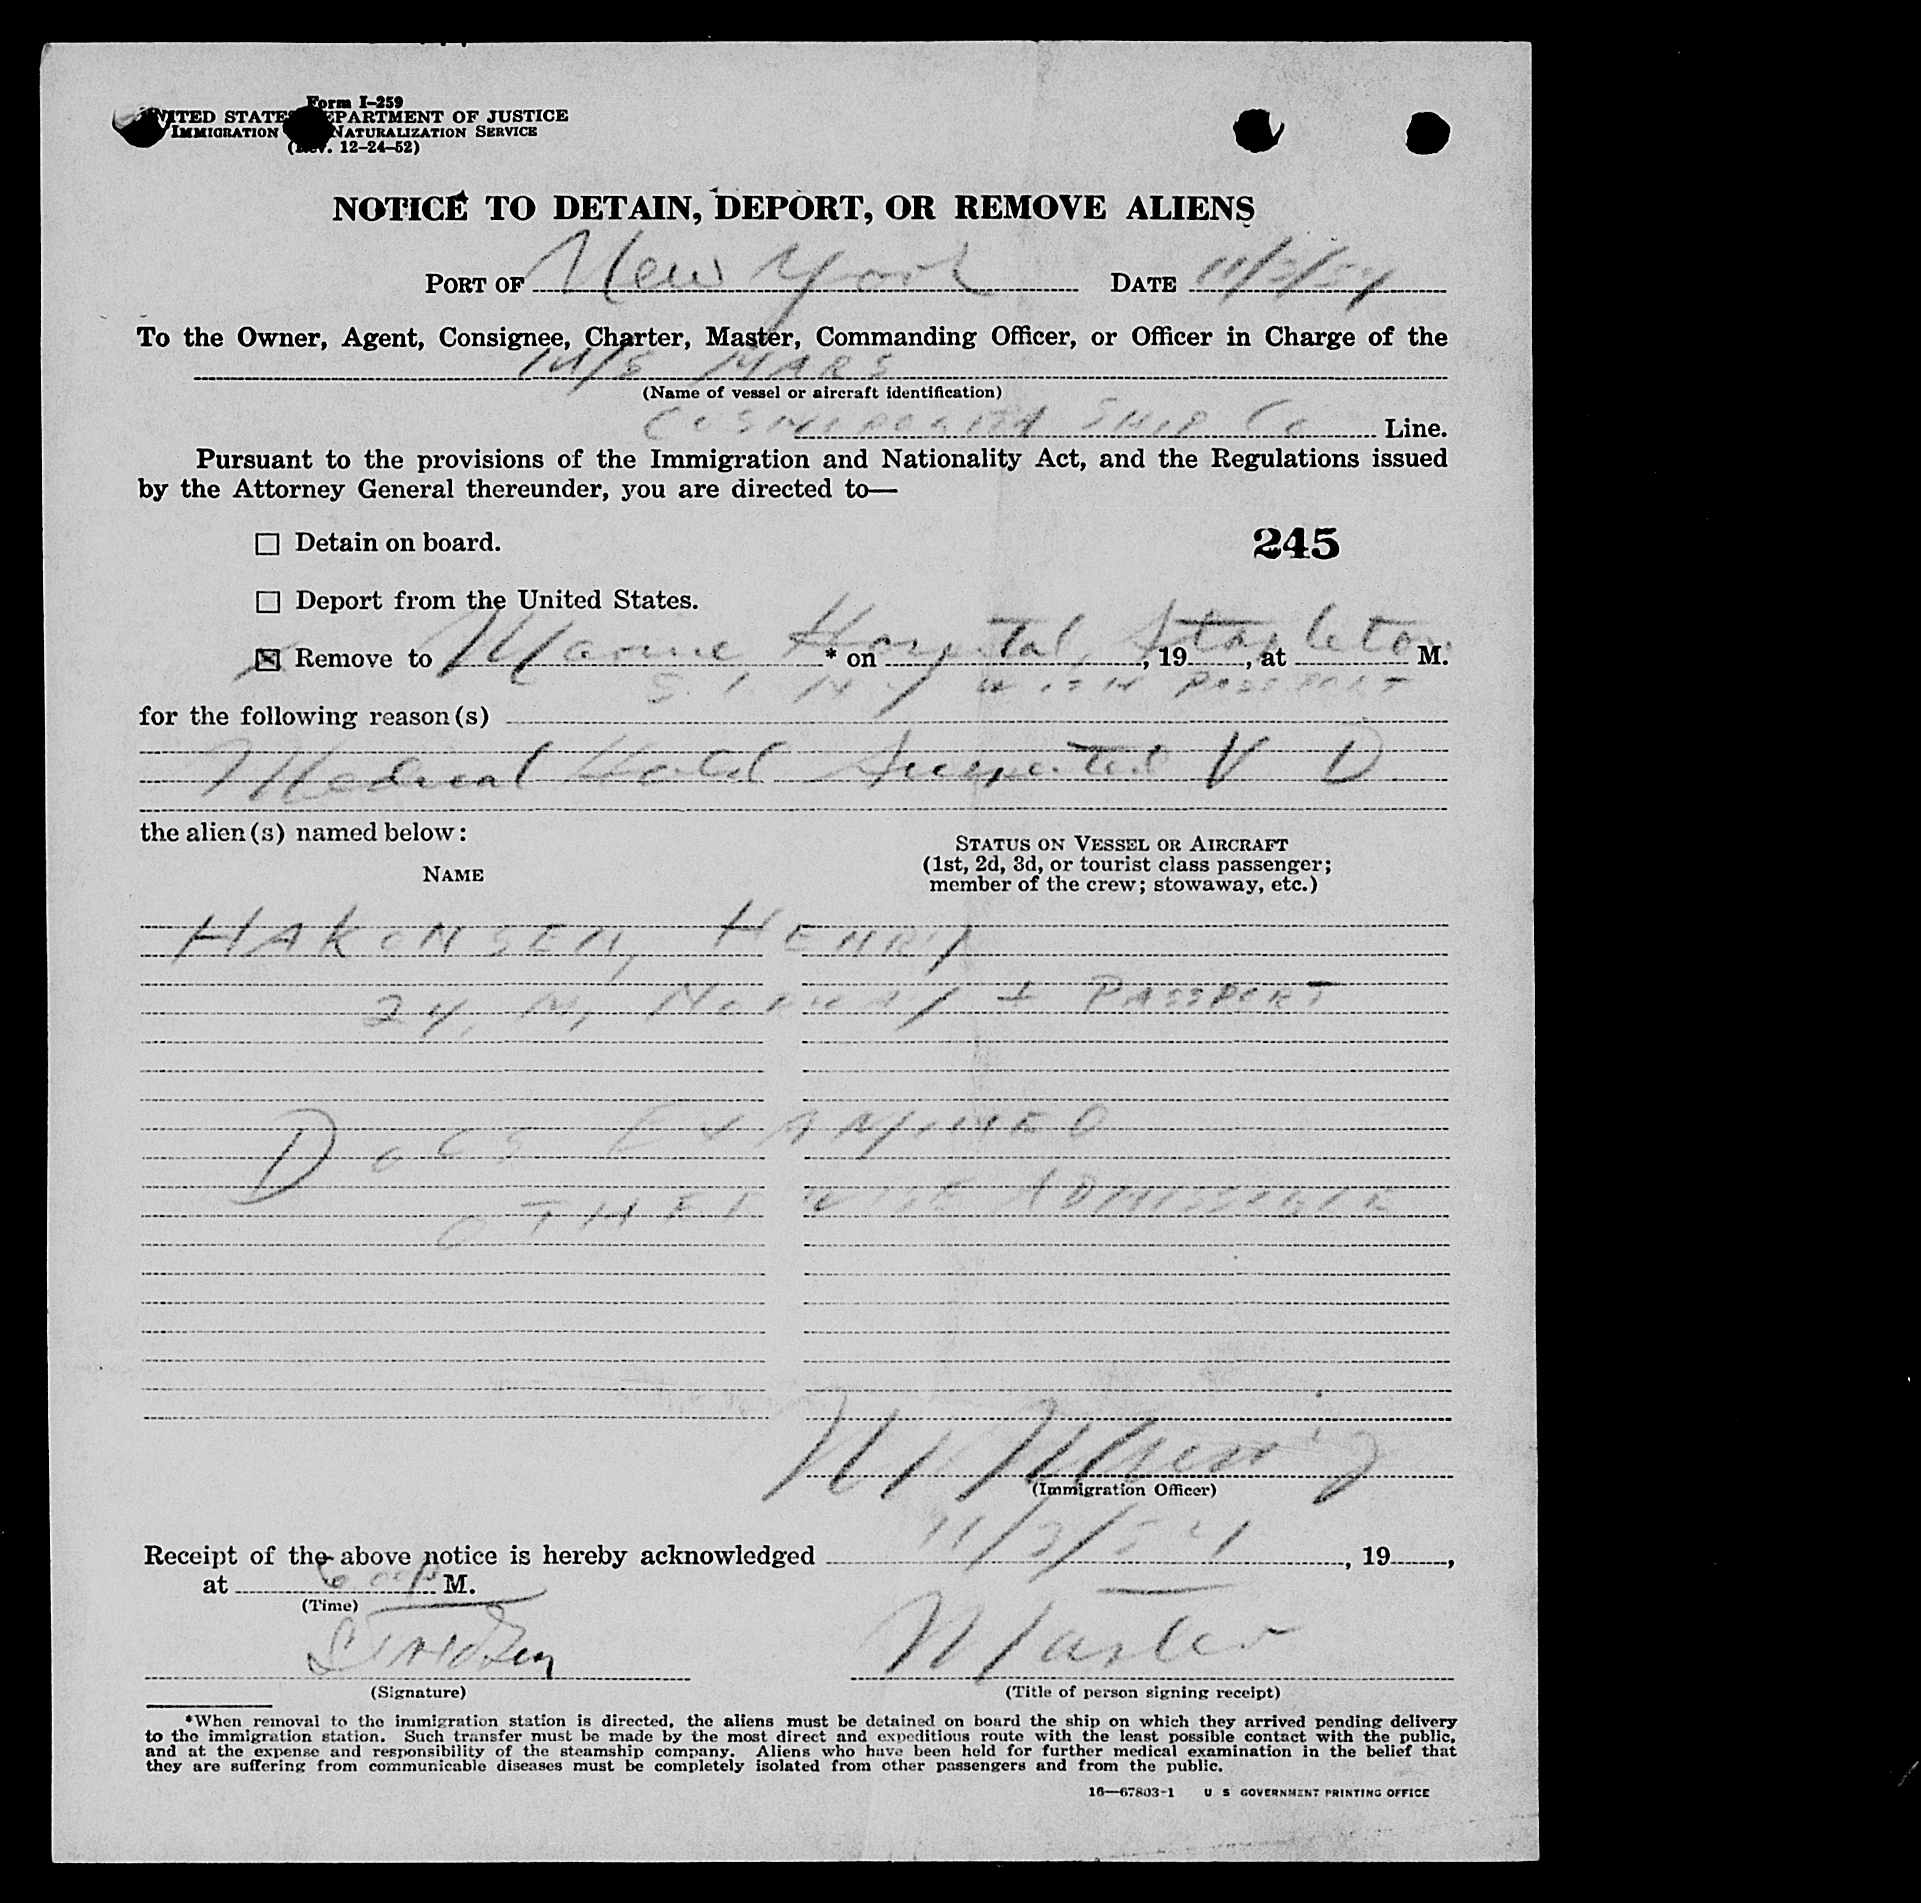 Form I-259
UNITED STATES DEPARTMENT OF JUSTICE
IMMIGRATION NATURALIZATION SERVICE
(Rev. 12-24-52)
NOTICE TO DETAIN, DEPORT, OR REMOVE ALIENS
PORT OF New York DATE 11/3/54
To the Owner, Agent, Consignee, Charter, Master, Commanding Officer, or Officer in Charge of the
M/S MARS
(Name of vessel or aircraft identification)
COSMOPOLITAN SHIP Co Line.
Pursuant to the provisions of the Immigration and Nationality Act, and the Regulations issued
by the Attorney General thereunder, you are directed to—
☐ Detain on board.
245
☐ Deport from the United States.
☒ Remove to Marine Hospital, Stapleton * on , 19 , at M.
S. I. N Y WITH PASSPORT
for the following reason(s)
Medical Hold Suspected V D
the alien(s) named below:
NAME
STATUS ON VESSEL OR AIRCRAFT
(1st, 2d, 3d, or tourist class passenger;
member of the crew; stowaway, etc.)
HAKONSEN, HENRY
24, M, NORWAY + PASSPORT
DOCS EXAMINED
OTHERWISE ADMISSIBLE
(Immigration Officer)
Receipt of the above notice is hereby acknowledged 11/3/54, 19 ,
at 6 00 P M.
(Time)
Master
(Signature)
(Title of person signing receipt)
*When removal to the immigration station is directed, the aliens must be detained on board the ship on which they arrived pending delivery
to the immigration station. Such transfer must be made by the most direct and expeditious route with the least possible contact with the public,
and at the expense and responsibility of the steamship company. Aliens who have been held for further medical examination in the belief that
they are suffering from communicable diseases must be completely isolated from other passengers and from the public.
16—67803-1 U S GOVERNMENT PRINTING OFFICE